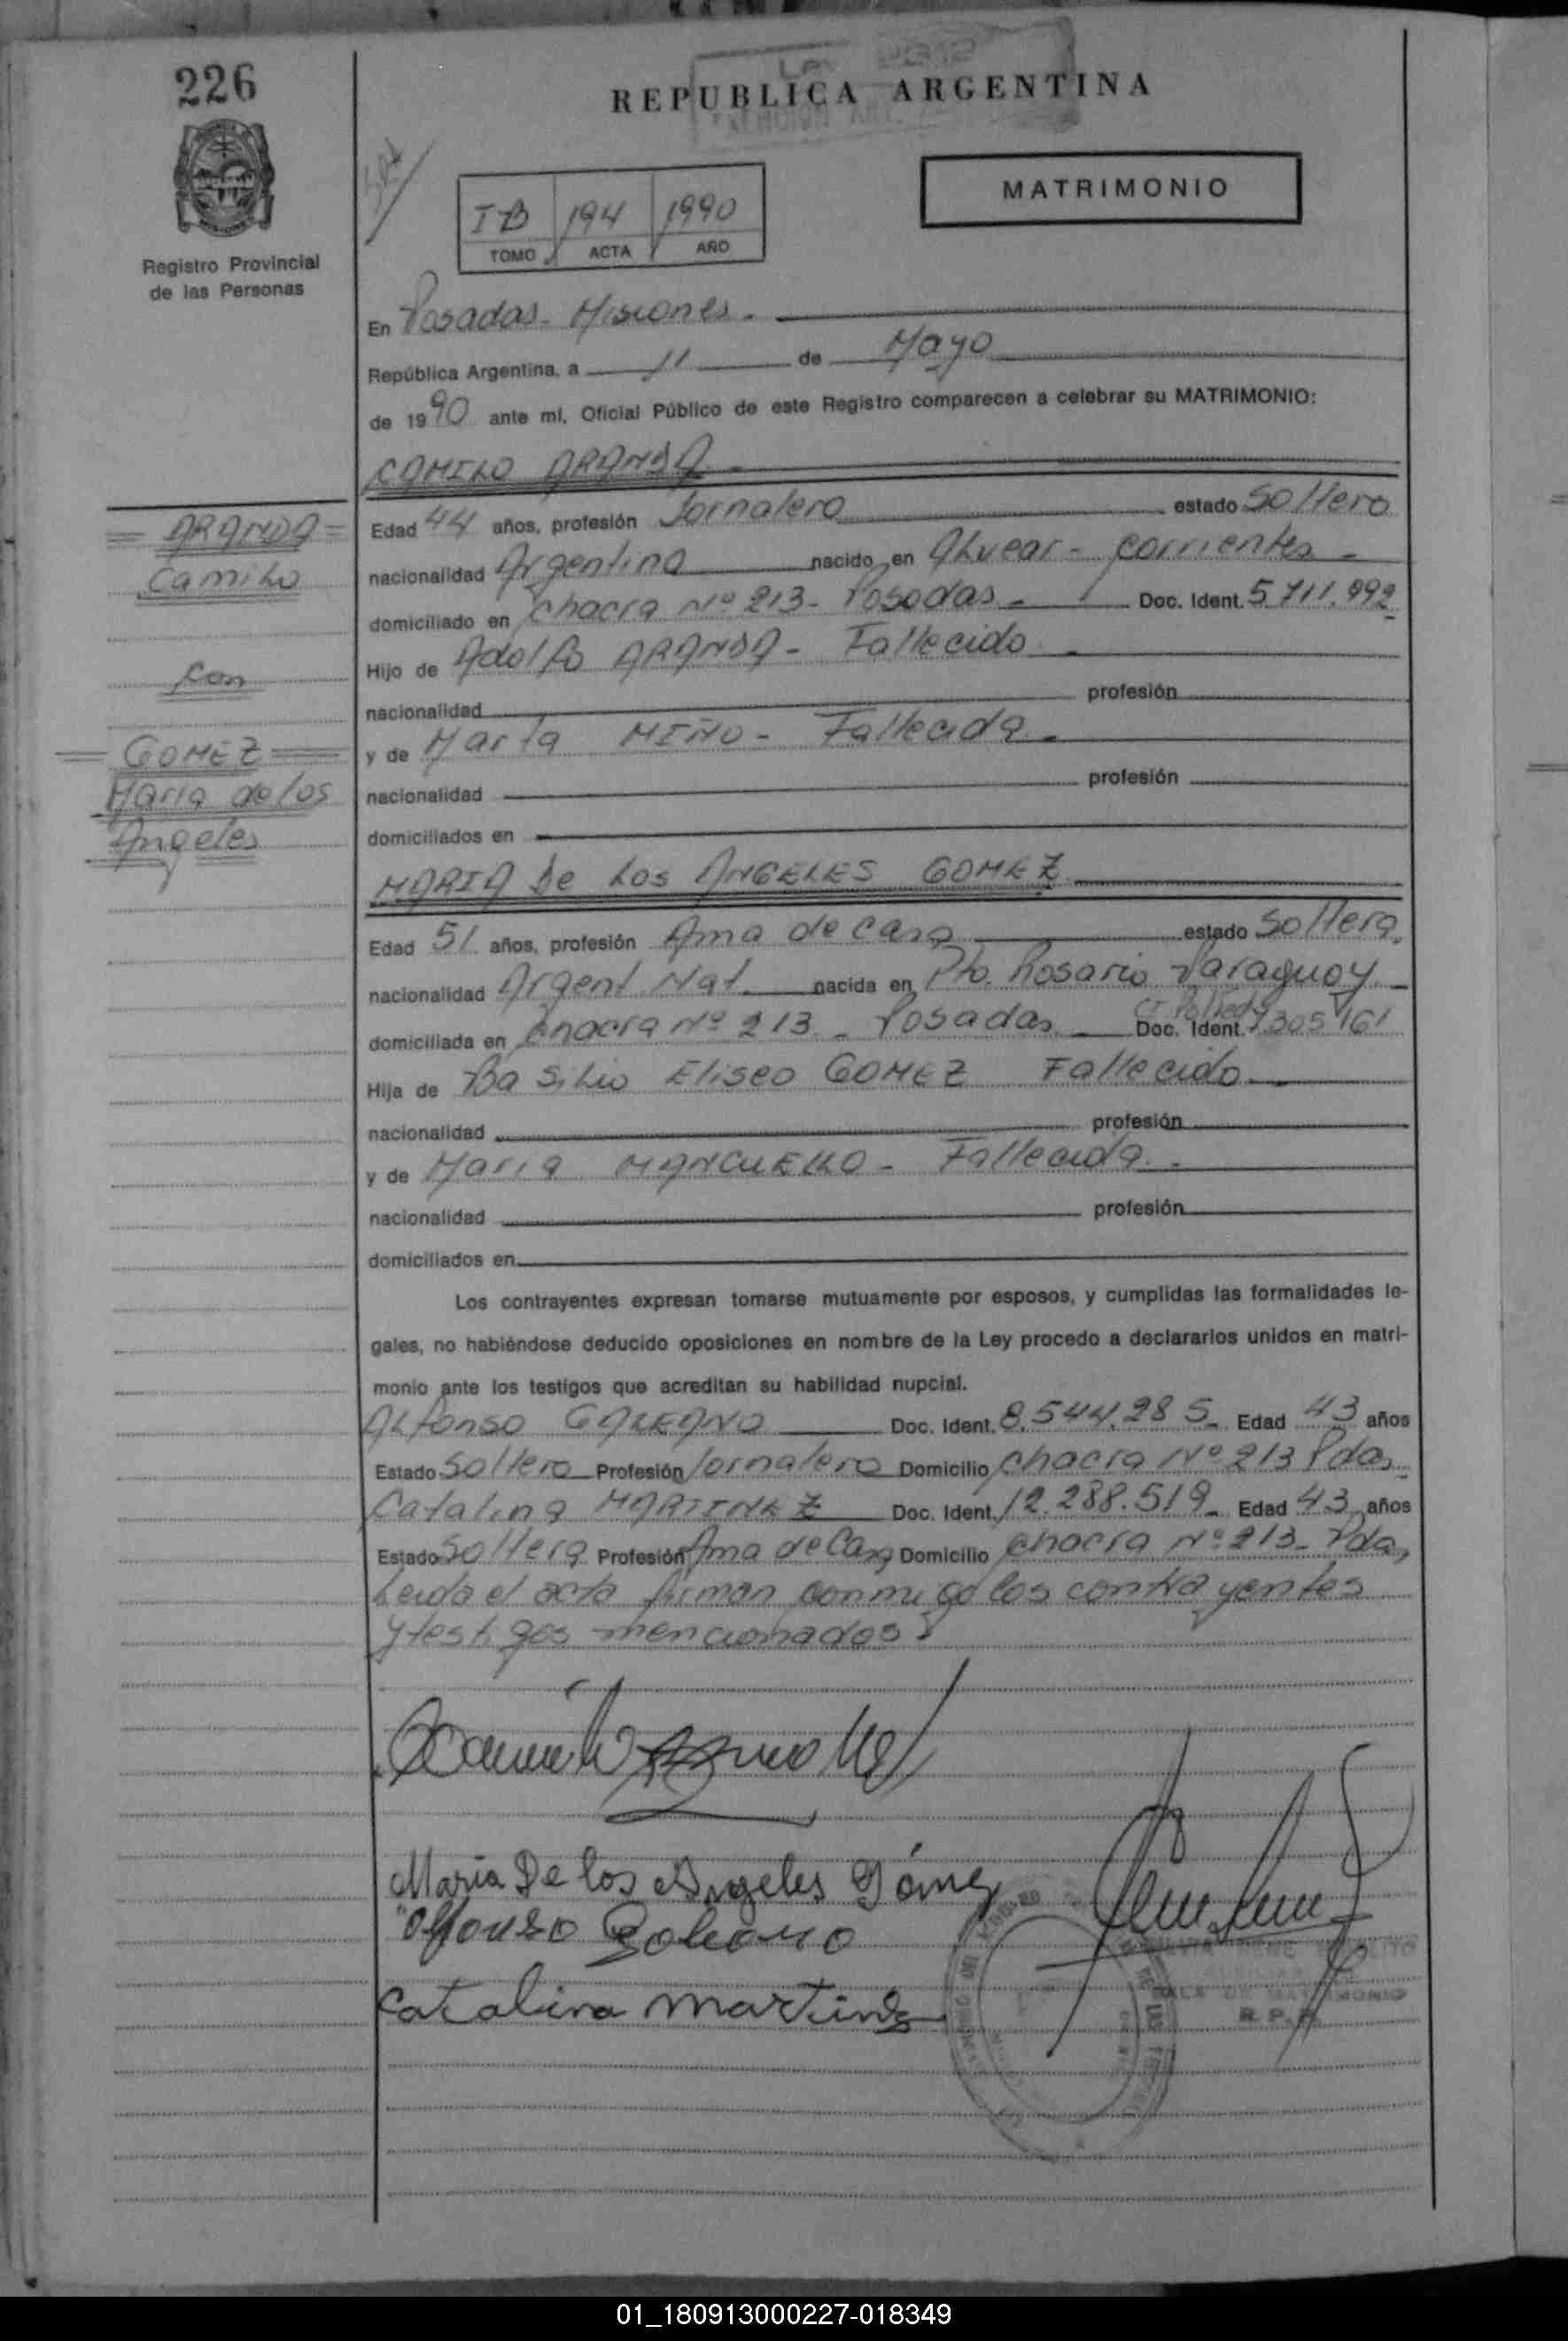 226
REPUBLICA ARGENTINA
MATRIMONIO
IB 194 1990
TOMO ACTA AÑO
Registro Provincial
de las Personas
En Posadas - Misiones.
República Argentina, a 11 de Mayo
de 1990 ante mi, Oficial Público de este Registro comparecen a celebrar su MATRIMONIO:
CAMILO ARANDA
ARANDA
Camilo
con
GOMEZ
Maria de los
Angeles
Edad 44 años, profesión Jornalero estado Soltero
nacionalidad Argentina nacido en Alvear - Corrientes -
domiciliado en Chacra Nº 213 - Posadas - Doc. Ident. 5.711.992
Hijo de Adolfo ARANDA - Fallecido
nacionalidad profesión
y de Marta MIÑO - Fallecida.
nacionalidad profesión
domiciliados en
MARIA De Los ANGELES GOMEZ
Edad 51 años, profesión Ama de Casa estado Soltera.
nacionalidad Argent Nat. nacida en Pto. Rosario Paraguay
domiciliada en Chacra Nº 213 - Posadas Doc. Ident. 7305161
Hija de Basilio Eliseo GOMEZ Fallecido
nacionalidad profesión
y de Maria MANCUELLO - Fallecida.
nacionalidad profesión
domiciliados en
Los contrayentes expresan tomarse mutuamente por esposos, y cumplidas las formalidades le-
gales, no habiéndose deducido oposiciones en nombre de la Ley procedo a declararlos unidos en matri-
monio ante los testigos que acreditan su habilidad nupcial.
Alfonso GALEANO Doc. Ident. 8.544.285 Edad 43 años
Estado Soltero Profesión Jornalero Domicilio Chacra Nº 213 Pdas.
Catalina MARTINEZ Doc. Ident. 12.288.519 Edad 43 años
Estado Soltera Profesión Ama de Casa Domicilio Chacra Nº 213 - Pdas,
Leida el acta firman conmigo los contrayentes
y testigos mencionados.
Maria De los Angeles Gómez
Alfonso Galeano
Catalina Martinez
MATRIMONIO
R. P. P.
01_180913000227-018349